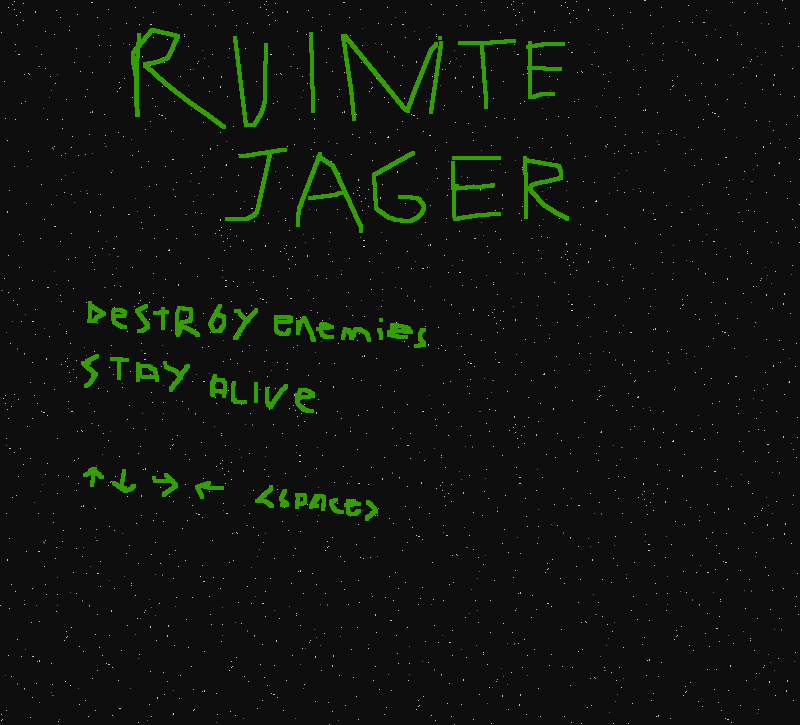 RUIMTE
JAGER
DESTROY enemies
STAY ALIVE
↑ ↓ → ← <SPACE>